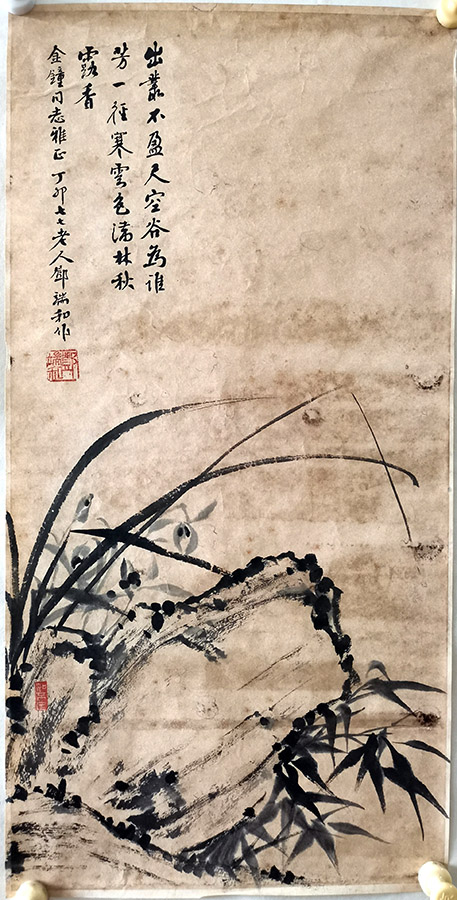 出叢不盈尺空谷為誰
芳一徑寒雲色滿林秋
露香
金鐘同志雅正 丁卯七七老人鄧瑞和作
鄧瑞和